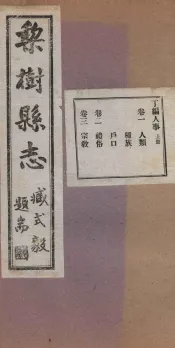 梨樹縣志
臧式毅
題耑
丁編人事 上冊
卷一 人類
種族
戶口
卷二 禮俗
卷三 宗教